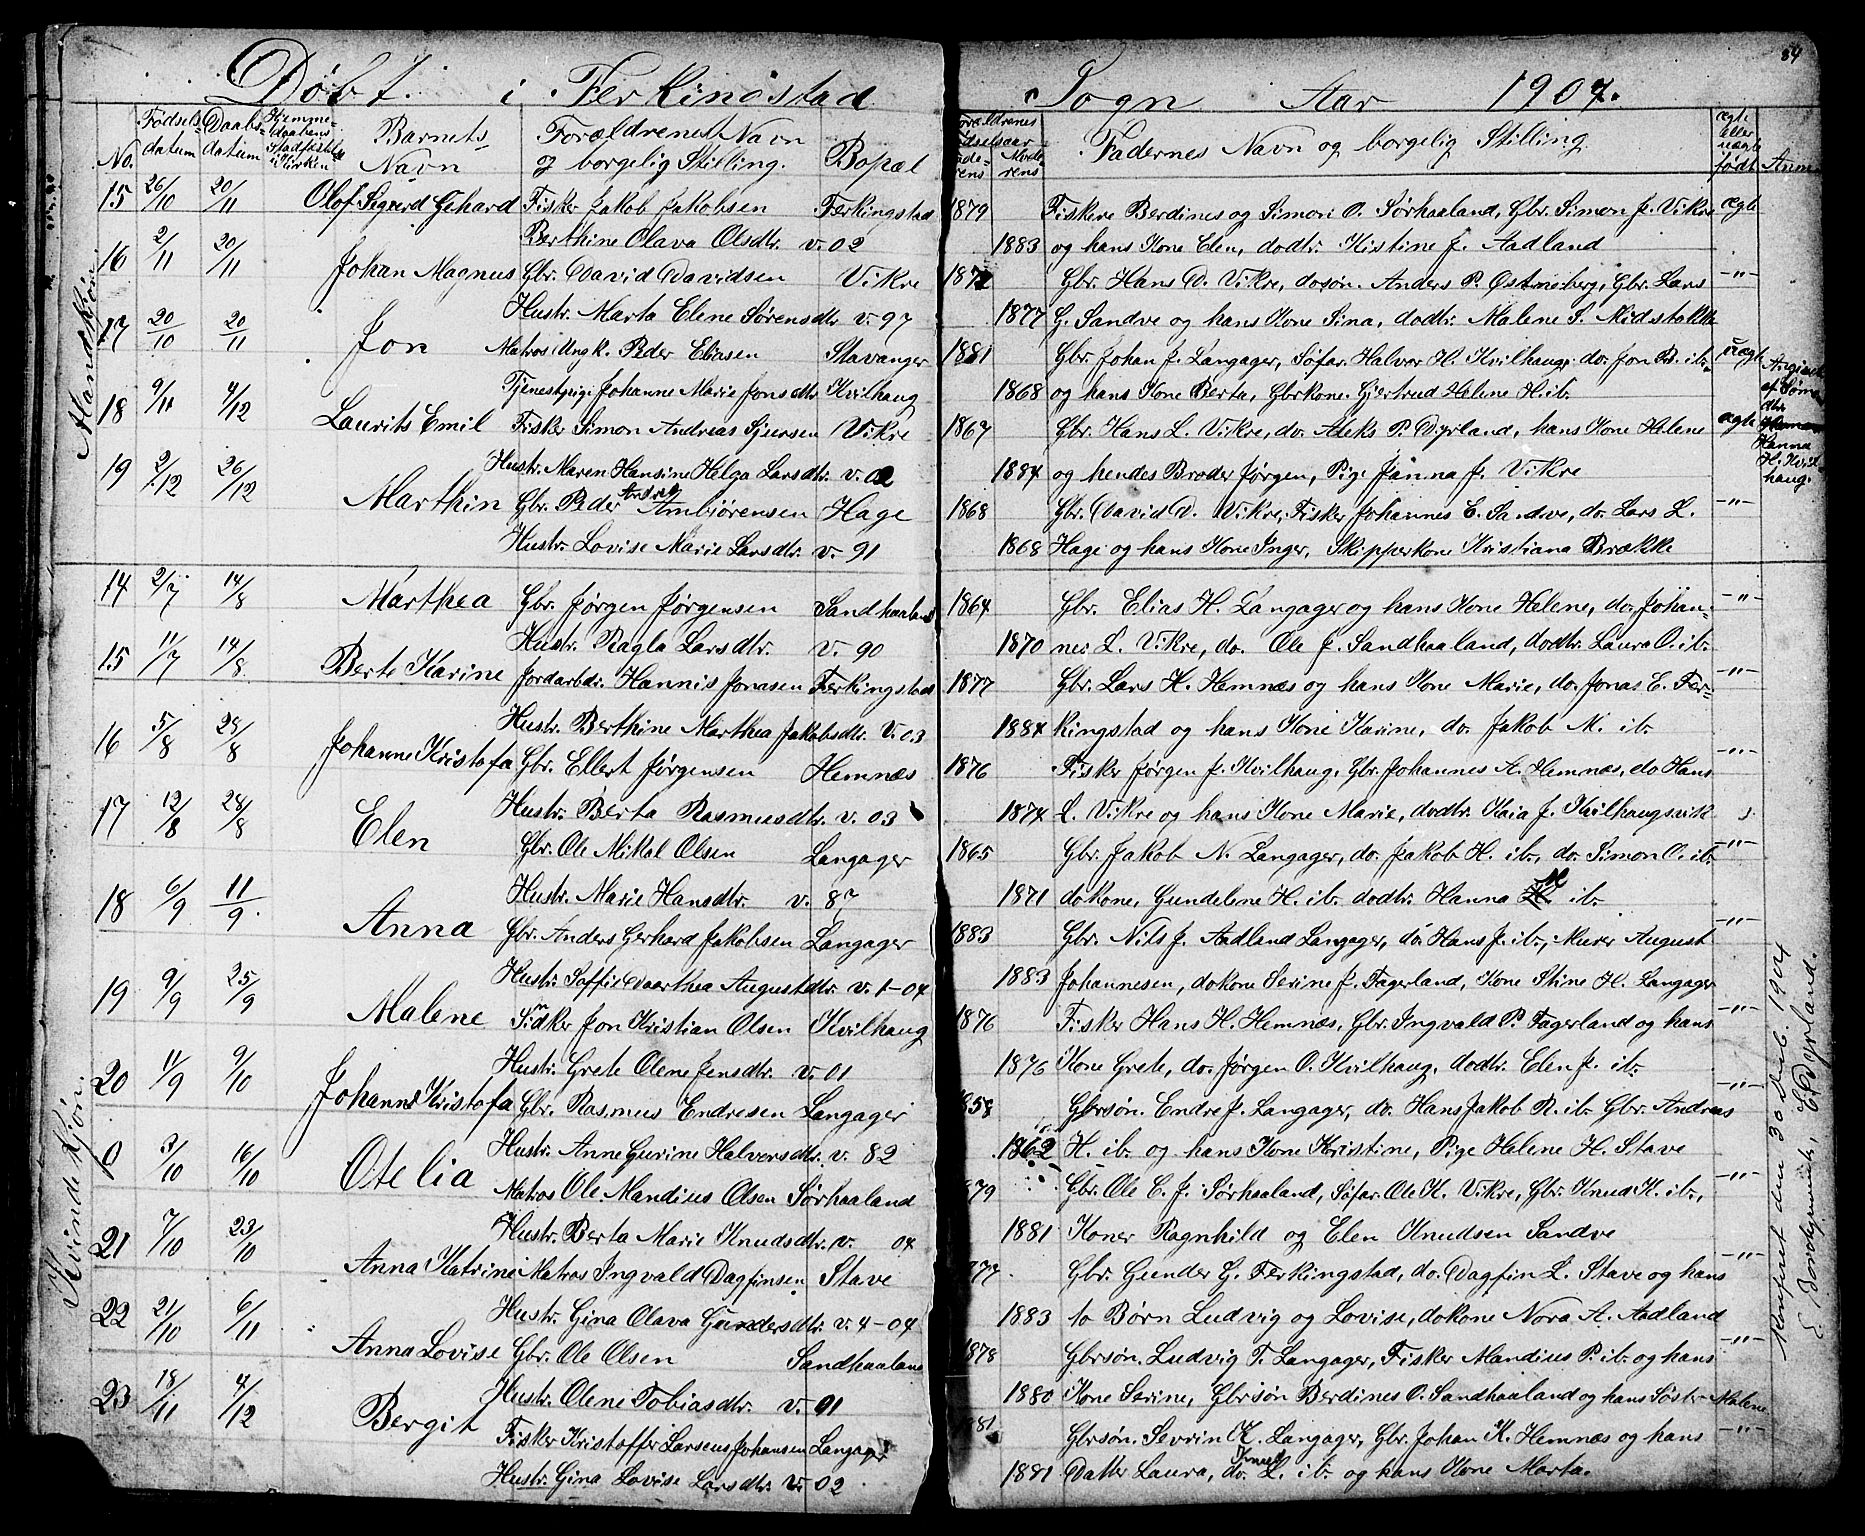 84
Döbt i Ferkingstad Sogn Aar 1904.
No. Fødsels- datum Daabs- datum Hjemme- daabens Stadfæstelse i Kirken Barnets Navn Forældrenes Navn og borgelig Stilling. Bopæl Forældrenes Fødselsaar Faderens Moderens Faderness Navn og borgelig Stilling ægte Eller uægte født Anm.
Mandkjøn.
15 26/10 20/11 Olof Sigurd Gehard Fisker Jakob Jakobsen Ferkingstad 1879 Fiskere Berdines og Simon O. Sørhaaland, Gbr. Simon J. Vikre ægte
Berthine Olava Olsdtr. v. 02 1883 og hans Kone Elen, dodtr. Kistine J. Aadland
16 2/11 20/11 Johan Magnus Gbr. David Davidsen Vikre 1872 Gbr. Hans D. Vikre, dosøn. Anders P. Østmsberg, Gbr. Lars -"-
Hustr. Marta Elene Sørensdtr v. 97 1877 G. Sandve og hans Kone Sina, dodtr. Malene S. Midstokke
17 20/10 20/11 Jon Matros Ungk. Peder Eliasen Stavanger 1881 Gbr. Johan J. Langager, Søfar. Halvor H. Kvilhaug. do. Jon B. ib. uægte
Tjenestpige Johanne Marie Jonsdtr Kvilhaug 1868 og hans Kone Berta, Gbrkone. Gjertrud Helene H. ib.
18 9/11 4/12 Laurits Emil Fisker Simon Andreas Sjursen Vikre 1867 Gbr. Hans L. Vikre, do. Aleks P. Dyrland, hans Kone Helene ægte
Hustr. Maren Hansine Helga Larsdtr. v. 02 1884 og hendes Broder Jørgen, Pige Janna J. Vikre
Hanna H. Kvilhaug.
19 2/12 26/12 Marthin Gbr. Peder Andrea Ambiørensen Hage 1868 Gbr. David D. Vikre, Fisker Johannes E. Sandve, do. Lars L. -"-
Hustr. Lovise Marie Larsdtr. v. 91 1868 Hage og hans Kone Inger, Skipperkone Kristiana Brække
Kvindekjøn.
14 2/7 14/8 Marthea Gbr. Jørgen Jørgensen Sandhaaland 1864 Gbr. Elias H. Langager og hans Kone Helene, do. Johan- -"-
Hustr. Ragla Larsdtr. v. 90 1870 nes L. Vikre, do. Ole J. Sandhaaland, dodtr. Laura O. ib.
15 11/7 14/8 Berte Karine Jordarbdr. Hannis Jonasen Ferkingstad 1877 Gbr. Lars H. Hemnæs og hans Kone Marie, do. Jonas E. Fer- -"-
Hustr. Berthine Marthea Jakobsdtr. v. 03 1884 kingstad og hans Kone Karine, do. Jakob M. ib.
16 5/8 28/8 Johanne Kristofa Gbr. Ellert Jørgensen Hemnæs 1876 Fisker Jørgen J. Kvilhaug, Gbr. Johannes A. Hemnæs, do Hans -"-
Hustr. Berta Rasmusdtr. v. 03 1874 L. Vikre og hans Kone Marie, dodtr. Kaia J. Kvilhaugsvik
17 12/8 28/8 Elen Gbr. Ole Mikal Olsen Langager 1865 Gbr. Jakob N. Langager, do. Jakob H. ib., do. Simon O. ib. -"-
Hustr. Marie Hansdtr. v. 87 1871 dokone, Gundelene H. ib. dodtr. Hanna M ib.
18 6/9 11/9. Anna Gbr. Anders Gerhard Jakobsen Langager 1883 Gbr. Nils J. Aadland Langager, do. Hans J. ib., Murer August -"-
Hustr. Soffie Daarthea Augustdtr. v. 1-04 1883 Johannesen, dokone Serine J. Fagerland, Kone Stine H. Langager
19 9/9 25/9 Malene Smidker Jon Kristian Olsen Kvilhaug 1876 Fisker Hans H. Hemnæs, Gbr. Ingvald P. Fagerland og hans -"-
Hustr. Grete Olene Jensdtr. v. 01 1876 Kone Grete, do. Jørgen O. Kvilhaug, dodtr. Elen J. ib.
20 11/9 9/10 Johanne Kristofa Gbr. Rasmus Endresen Langager 1858 Gbrsøn. Endre J. Langager, do. Hans Jakob R. ib. Gbr. Andreas -"-
Hustr. Anne Gurine Halversdtr. v. 82 1862 H. ib. og hans Kone Kristine, Pige Helene H. Stave
0 3/10 16/10 Otelia Matros Ole Mandius Olsen Sørhaaland 1879 Gbr. Ole C. J. Sørhaaland, Søfar. Ole K. Vikre, Gbr. Knud K. ib., -"-
Hustr. Berta Marie Knudsdtr. v. 04 1881 Koner Ragnhild og Elen Knudsen Sandve
21 7/10 23/10 Anna Katrine Matros Ingvald Dagfinsen Stave 1877 Gbr. Gunder G. Ferkingstad, do. Dagfin L. Stave og hans -"-
Hustr. Gina Olava Gundersdtr. v. 4-04 1883 to Børn Ludvig og Lovise, dokone Nora A. Aadland
22 21/10 6/11 Anna Lovise Gbr. Ole Olsen Sandhaaland 1878 Gbrsøn. Ludvig T. Langager, Fisker Mandius P. ib. og hans -"-
Hustr. Olene Tobiasdtr. v. 01 1880 Kone Serine, Gbrsøn Berdines O. Sandhaaland og hans Søstr. Malene
23 18/11 4/12 Bergit Fisker Kristoffer Larsens Johansen Langager 1881 Gbrsøn. Sevrin K. Langager, Gbr. Johan K. Hemnæs og hans -"-
Hustr. Gina Lovise Larsdtr. v. 02 1881 Datter Laura, do. L. ib. og hans Kone Marta.
Konfret den 30 Decb. 1904
E. Dyrland.